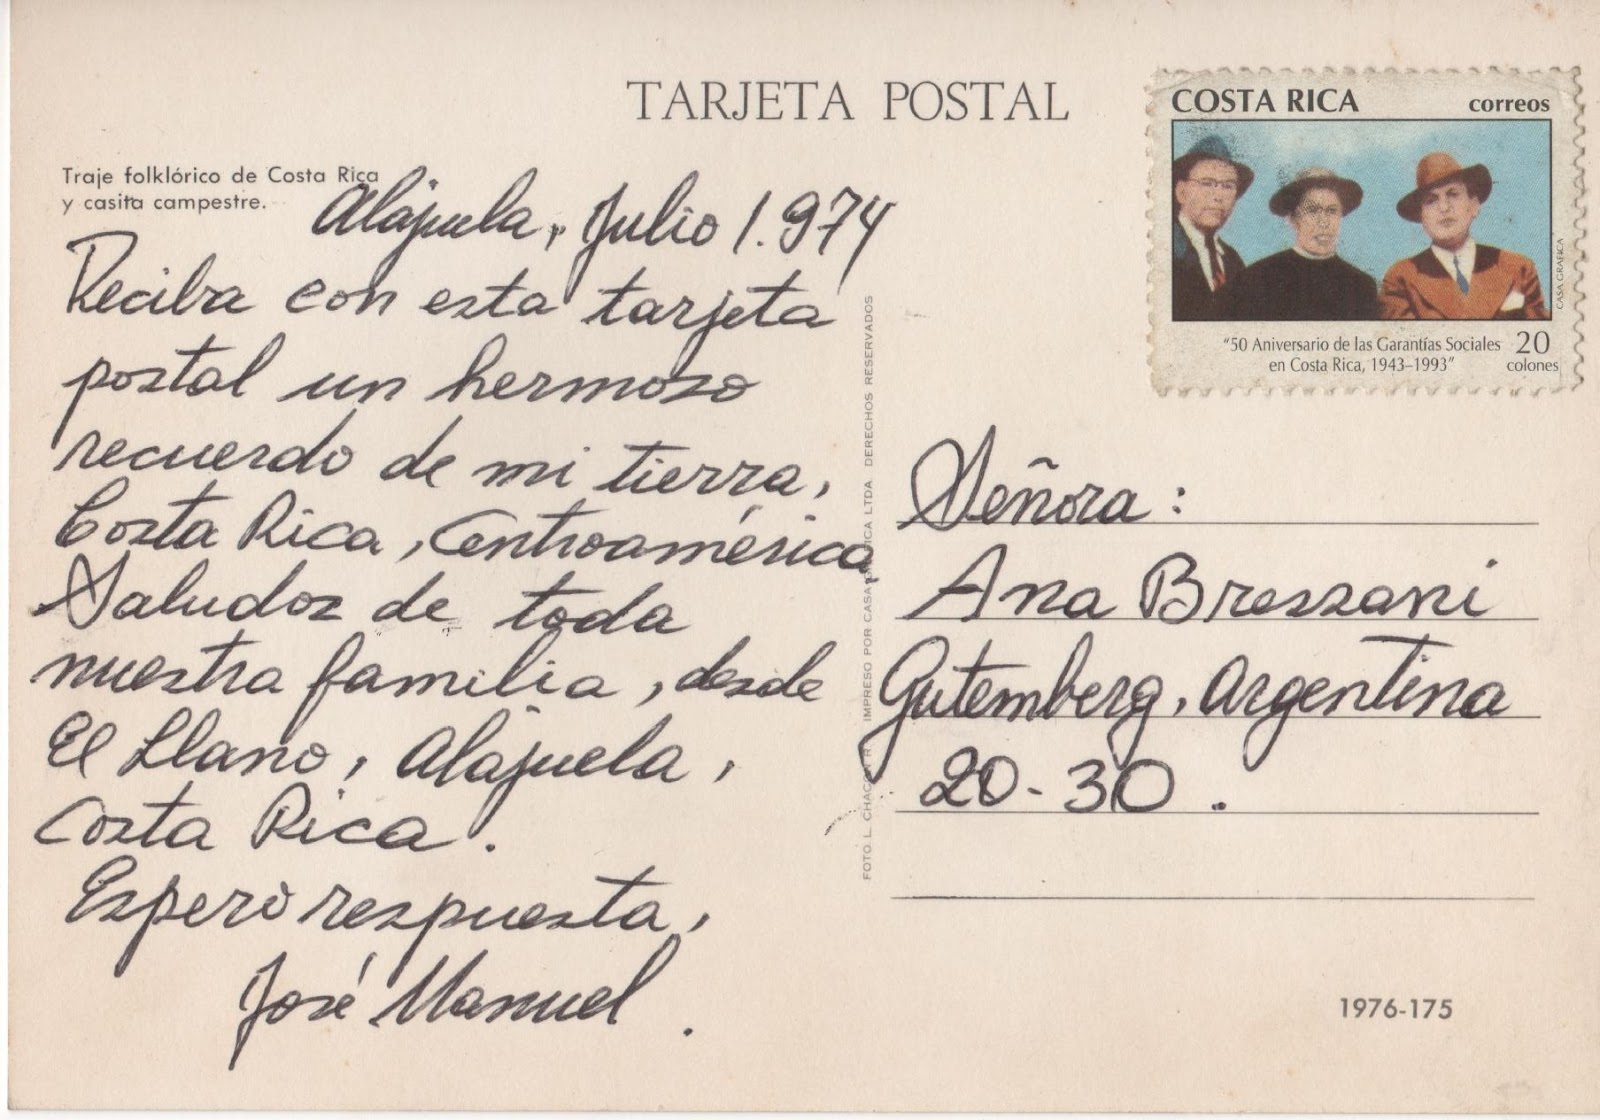 TARJETA POSTAL
Traje folklórico de Costa Rica
y casita campestre.
Alajuela, Julio 1.974
Reciba con esta tarjeta
postal un hermoso
recuerdo de mi tierra,
Costa Rica, Centroamérica.
Saludos de toda
nuestra familia, desde
El Llano, Alajuela,
Costa Rica.
Espero respuesta,
José Manuel.
FOTO L. CHACON R IMPRESO POR CASA GRAFICA LTDA. DERECHOS RESERVADOS
COSTA RICA correos
CASA GRAFICA
"50 Aniversario de las Garantías Sociales
en Costa Rica, 1943-1993"
20
colones
Señora:
Ana Bressani
Gutemberg, Argentina
20-30.
1976-175